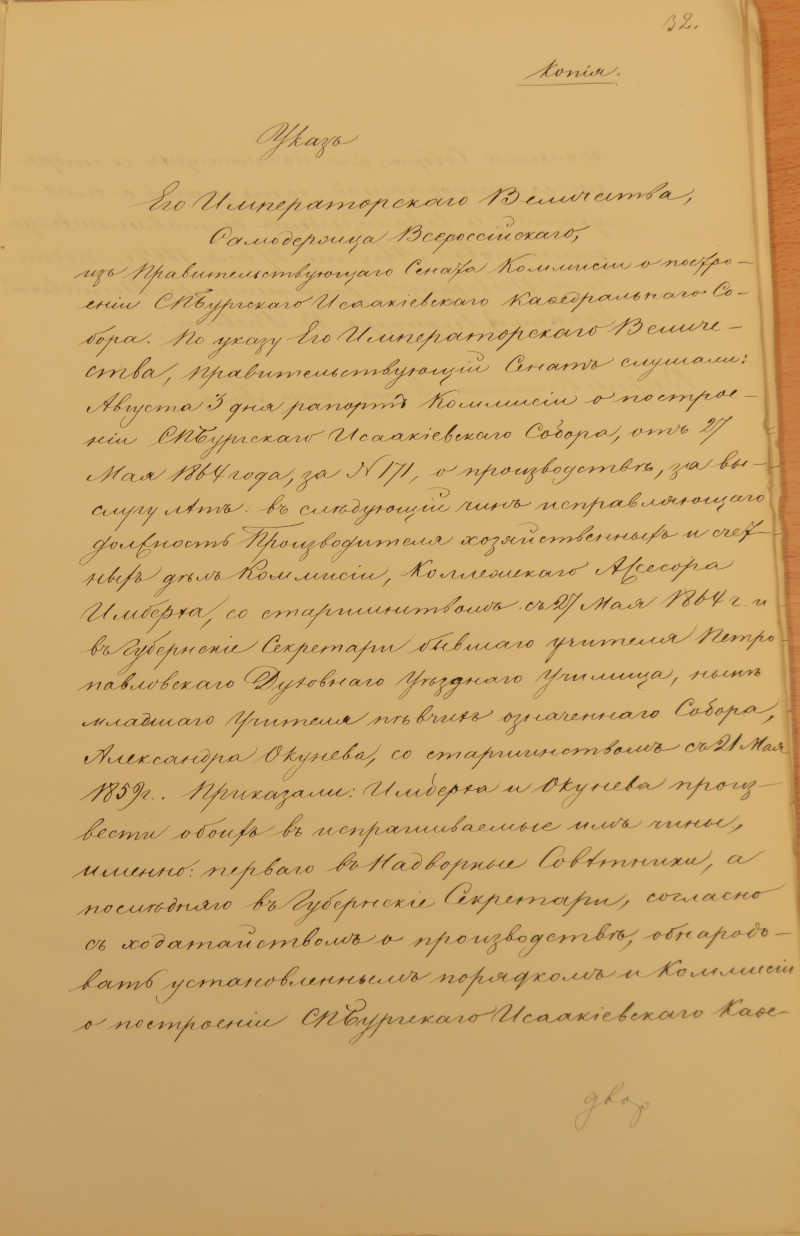 32.
Копія.
Указъ
Его Императорскаго Величества,
Самодержца Всероссійскаго,
изъ Правительствующаго Сената Коммисіи о постро-
еніи СПбургскаго Исаакіевскаго Каѳедральнаго Со-
бора. По указу Его Императорскаго Величе-
ства, Правительствующій Сенатъ слушали:
Августа 3 дня рапортъ Коммисіи о построе-
ніи СПбургскаго Исаакіевскаго Собора, отъ 27
Мая 1864 года, за N 171, о производствѣ, за вы-
слугу лѣтъ въ слѣдующій чинъ исправляющаго
должность Производителя хозяйственныхъ и счет-
ныхъ дѣлъ Коммисіи, Коллежскаго Ассесора
Имберха, со старшинствомъ съ 27 Мая 1864 г. и
въ Губернскіе Секретари бывшаго учителя Петро
павловскаго Духовнаго Уѣзднаго Училища, нынѣ
младшаго Учителя пѣвчихъ означеннаго Собора,
Александра Окунева, со старшинствомъ съ 21 Мая
1859 г.. Приказали: Имберха и Окунева произ-
вести обоихъ въ испрашиваемые имъ чины,
именно: перваго въ Надворные Совѣтники, а
послѣдняго въ Губернскіе Секретари, согласно
съ ходатайствомъ о производствѣ, обнародо-
вать установленнымъ порядкомъ и Коммисіи
о построеніи СПбургскаго Исаакіевскаго Каѳе-